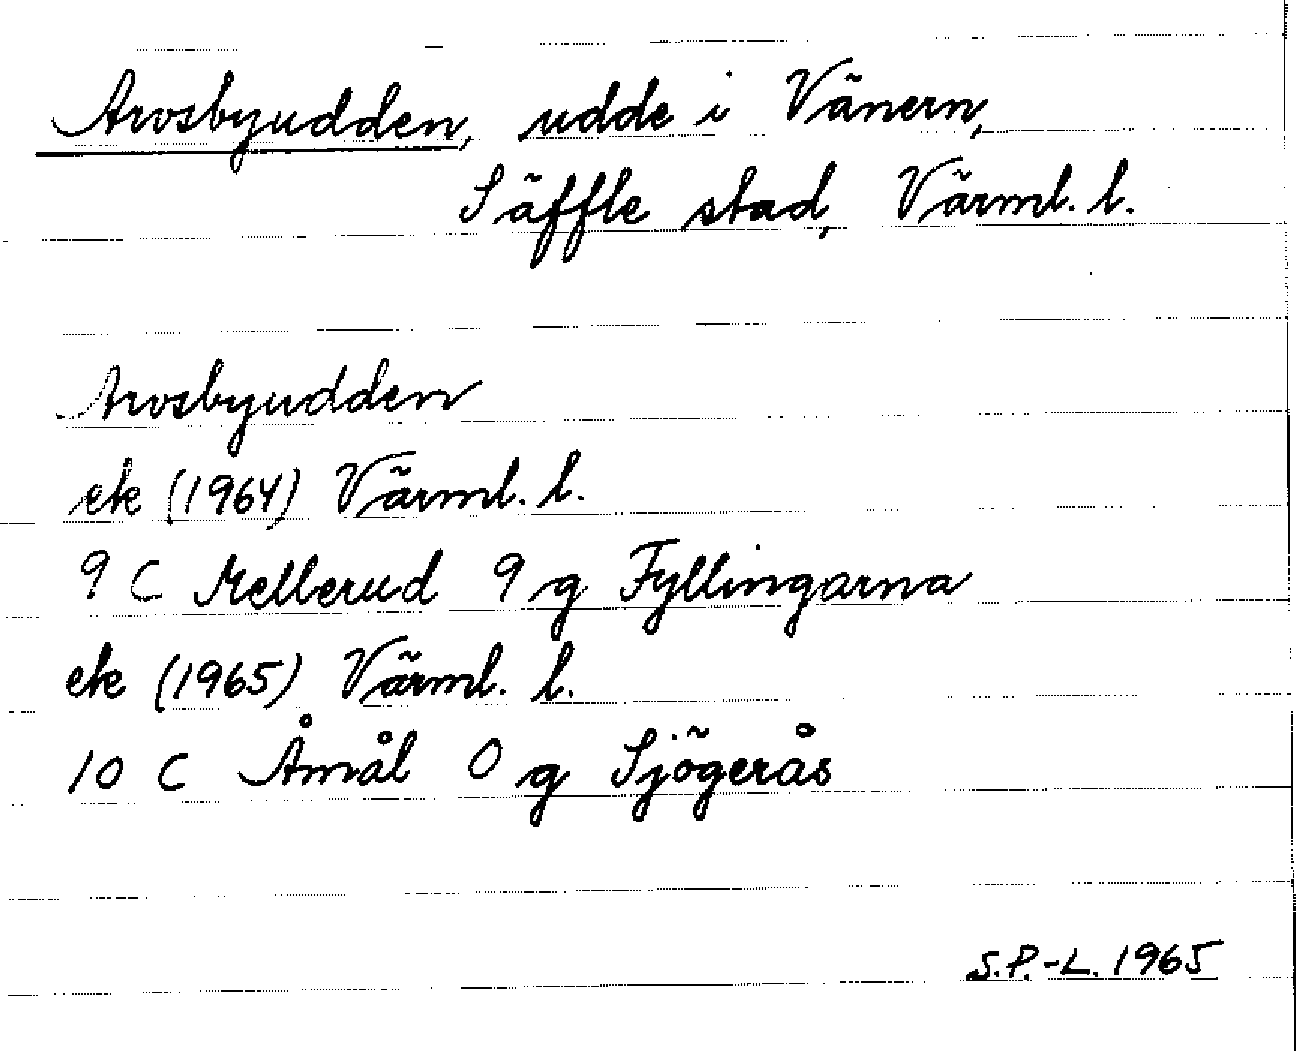 Arosbyudden, udde i Vänern,
Säffle stad, Värml. l.
Arosbyudden
ek (1964) Värml. l.
9 C Mellerud 9 g Fyllingarna
ek (1965) Värml. l.
10 C Åmål 0 g Sjögerås
S.P.-L. 1965